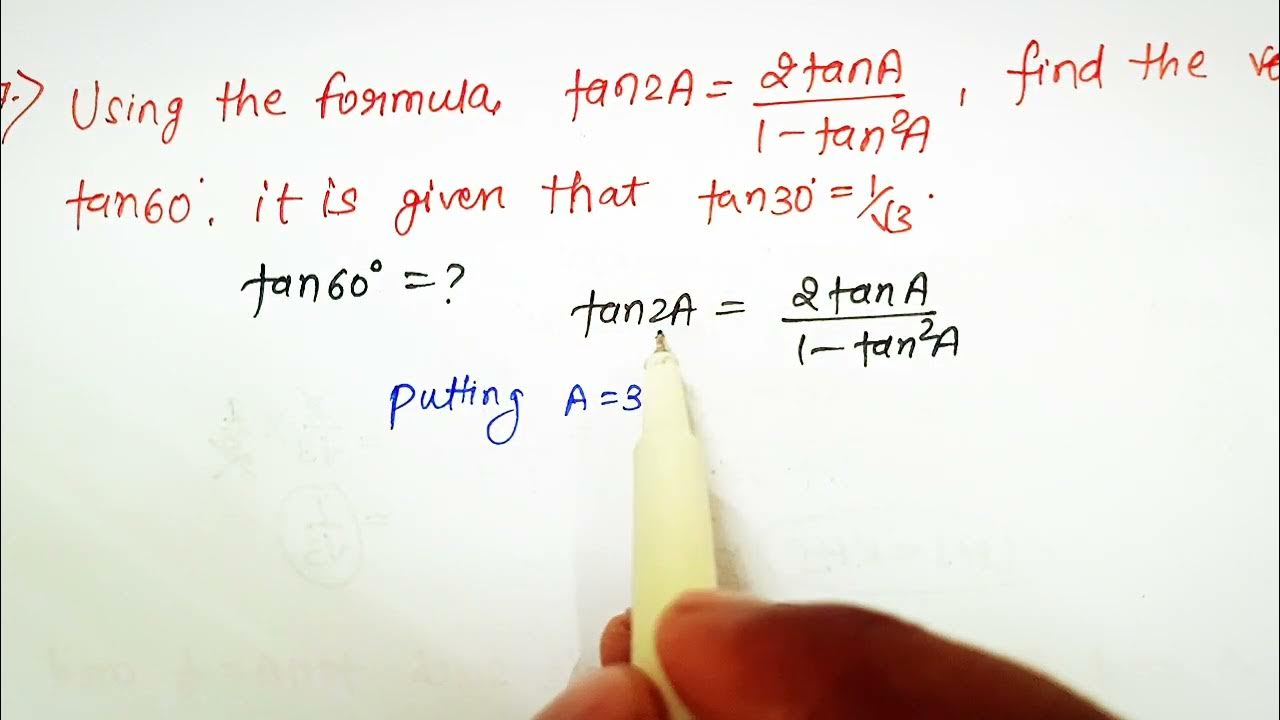 Using the formula, tan2A = 2tanA / 1 - tan²A , find the
tan60°. it is given that tan30° = 1/√3.
tan60° = ?
tan2A = 2tanA / 1 - tan²A
putting A = 3